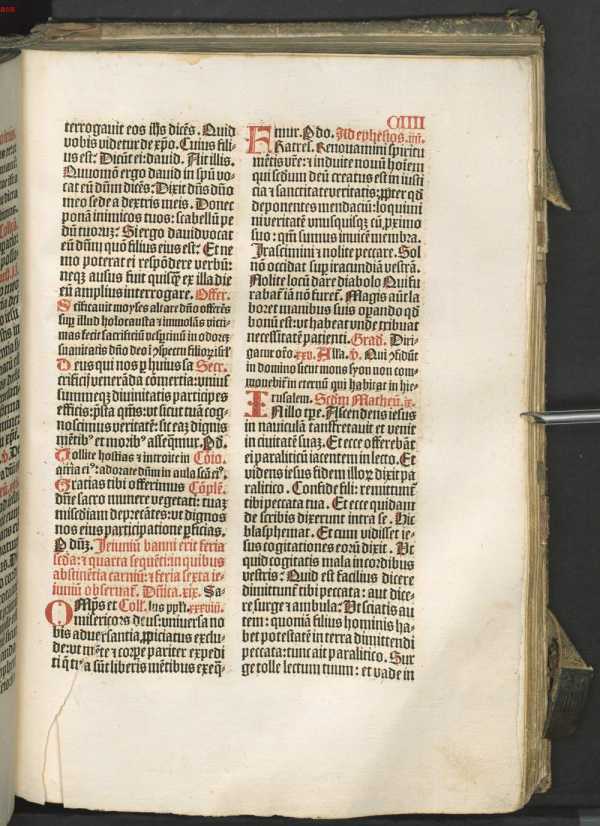 CIIII
terrogauit eos ihs dicēs. Quid
vobis videtur de xpō. Cuius fili⸗
us est: Dicūt ei: dauid. Ait illis.
Quiomō ergo dauid in spū vo⸗
cat eū dnm dicēs: Dixit dns dño
meo sede a dextris meis. Donec
ponā inimicos tuos: scabellū pe
dū tuorꝝ: Si ergo dauid vocat
eū dnm quō filius eius est: Et ne
mo poterat ei respōdere verbū:
neqꝫ ausus fuit quisqꝫ ex illa die
eū amplius interrogare. Offer.
Sctificauit moyses altare dño offerēs
suꝑ illud holocausta ⁊ immolās victi⸗
mas fecit sacrificiū
suauitatis dño deo
Deus qui nos ꝑ huius sa Secr.
crificij venerāda cōmertia: vnius
summeqꝫ diuinitatis participes
efficis: pſta qſs: vt sicut tuā cog⸗
noscimus veritatē: sic eaꝫ dignis
mētibꝰ et moribꝰ asseqmur. Pd.
Tollite hostias ⁊ introite in Cōio.
atria eiꝰ: adorate dnm in aula scā eiꝰ.
Gratias tibi offerimus Cōple.
dñe sacro munere vegetati: tuaꝫ
miscdiam deprecātes: vt dignos
nos eius participatione ꝑficias.
P dnꝫ. Ieiuniū banni erit feria
scda: ⁊ quarta sequēti: in quibus
abstinētia carniū: ⁊ feria sexta ie⸗
iuniū obseruat. Dnica. xix. Sa⸗
 et Coll. xxxviii.
OMps ⁊
misericors deus: vniuersa no
bis aduersantia ꝓpiciatus exclu⸗
de: vt mēte ⁊ corꝑe pariter expedi
ti q tᵃ sūt liberis mētibus exeq⸗
Amur. P do. Ad ephesios. iiii.
Fratres. Renouamini spiritu
mētis vrē: ⁊ induite nouū hoīem
qui scdum deū creatus est in iusti
cia ⁊ sanctitate veritatis: ꝓpter qd
deponentes mendaciū: loquimi
ni veritatē vnusquisqꝫ cū ꝓximo
suo: qm sumus inuicē membra.
Irascimini ⁊ nolite peccare. Sol
nō occidat sup iracundiā vestrā.
Nolite locū dare diabolo Qui fu
rabaī iā nō furet. Magis aūt la
boret manibus suis opando qd
bonū est: vt habeat vnde tribuat
necessitatē patienti. Grad. Diri⸗
gatur oro. xxv. Alla. v. Qui pfidūt
in domino sicut mons syon non com
mouebit in eternū qui habitat in hie⸗
rusalem. Scdm Matheū. ix.
IN illo tpe. Ascendens iesus
in nauiculā transfretauit et venit
in ciuitatē suaꝫ. Et ecce offerebāt
ei paraliticū iacentem in lecto. Et
videns iesus fidem illorꝝ dixit pa
ralitico. Confide fili: remittunt
tibi peccata tua. Et ecce quidam
de scribis dixerunt intra se. Hic
blasphemat. Et cum vidisset ie⸗
sus cogitationes eorū dixit. Vt
quid cogitatis mala in cordibus
vestris: Quid est facilius dicere
dimittunt tibi peccata: aut dice⸗
re surge ⁊ ambula: Vt sciatis au
tem: quoniā filius hominis ha⸗
bet potestatē in terra dimittendi
peccata: tunc ait paralitico. Sur
ge tolle lectum tuum: et vade in